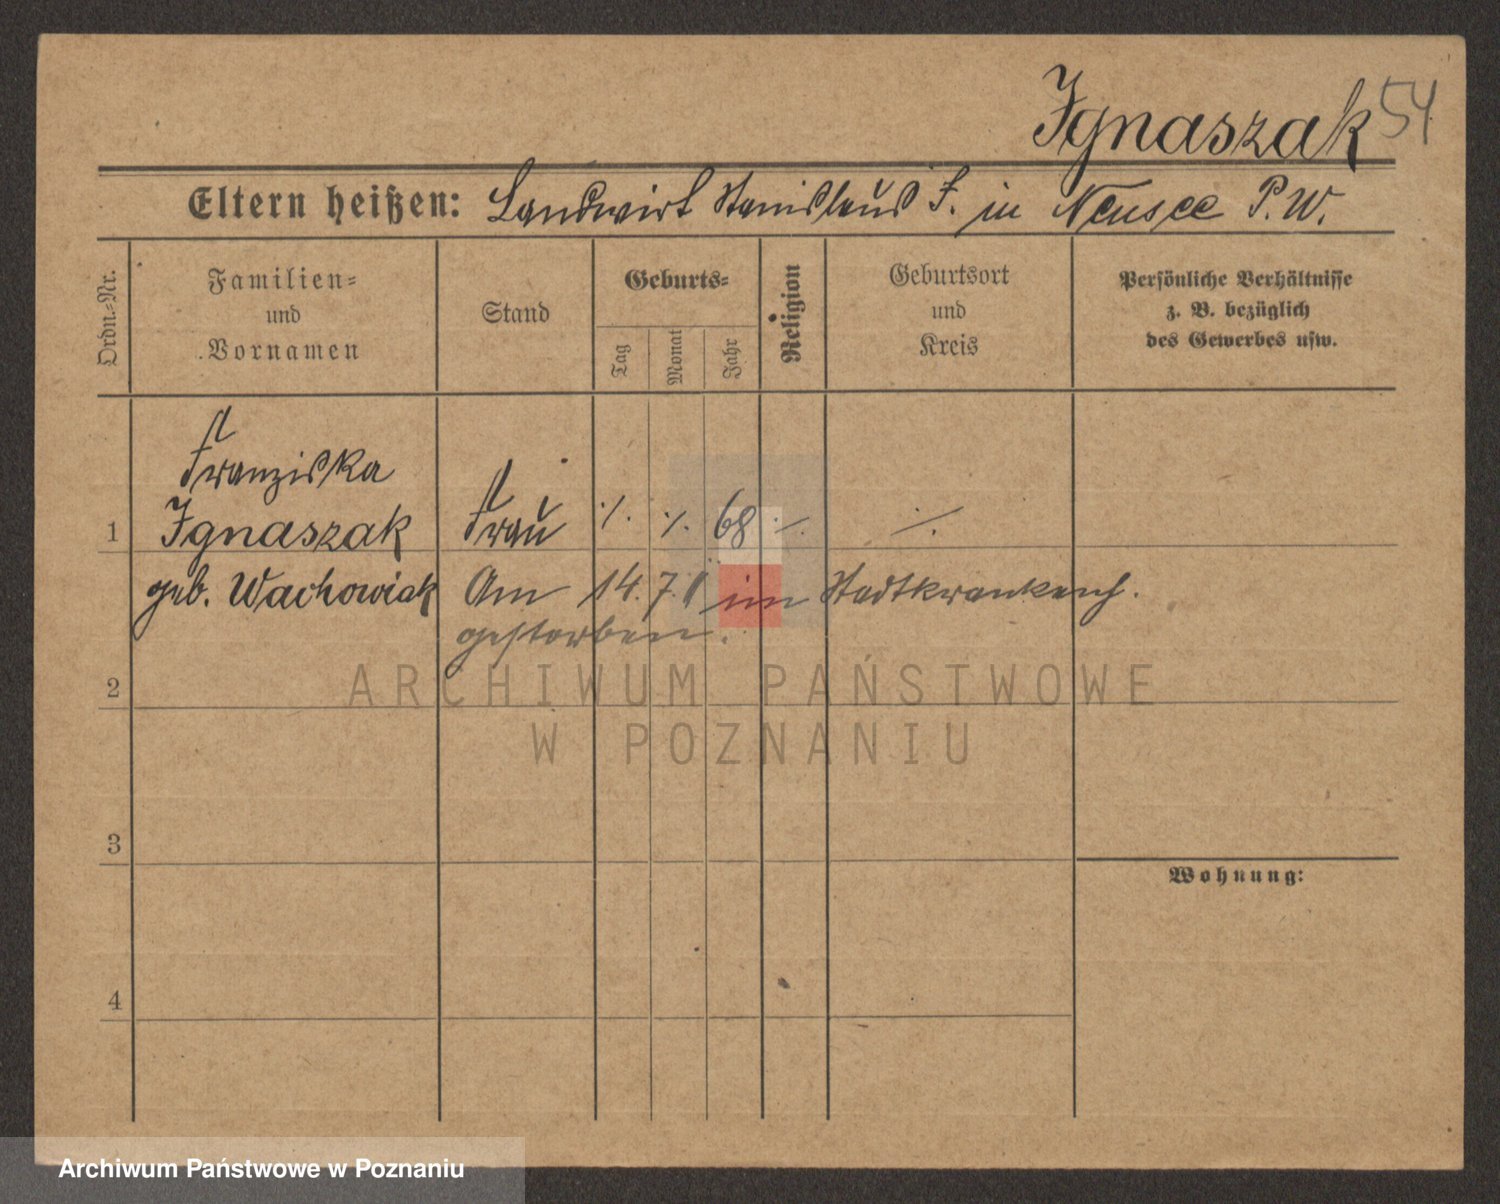 Ignaszak 54
Eltern heißen: Landwirt Stanislaus I. in Neusee P.W.
Ordn.=Nr.
Familien=
und
Vornamen
Stand
Geburts=
Tag
Monat
Jahr
Religion
Geburtsort
und
Kreis
Persönliche Verhältnisse
z. B. bezüglich
des Gewerbes usw.
Franziska
1 Ignaszak Frau ./. ./. 68 ./. ./.
geb. Wachowiak Am 14.7. im Stadtkrankenh.
gestorben.
2
3
Wohnung:
4
ARCHIWUM PAŃSTWOWE
W POZNANIU
Archiwum Państwowe w Poznaniu